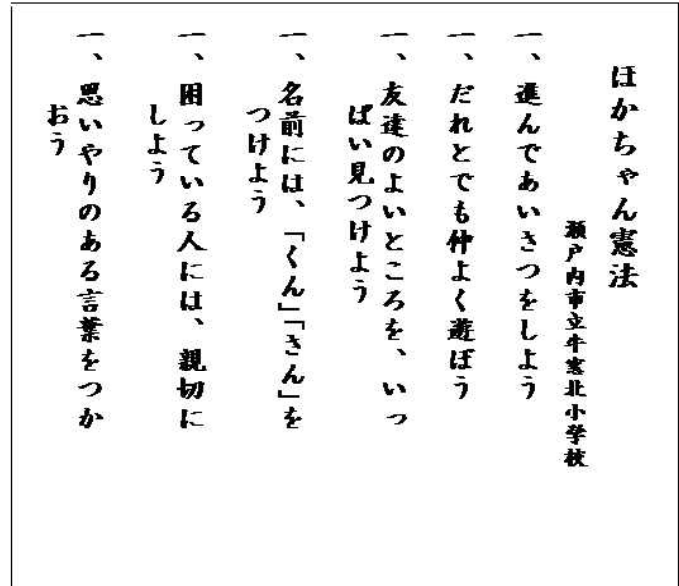 ほかちゃん憲法
瀬戸内市立牛窓北小学校
一、進んであいさつをしよう
一、だれとでも仲よく遊ぼう
一、友達のよいところを、いっ
ぱい見つけよう
一、名前には、「くん」「さん」を
つけよう
一、困っている人には、親切に
しよう
一、思いやりのある言葉をつか
おう